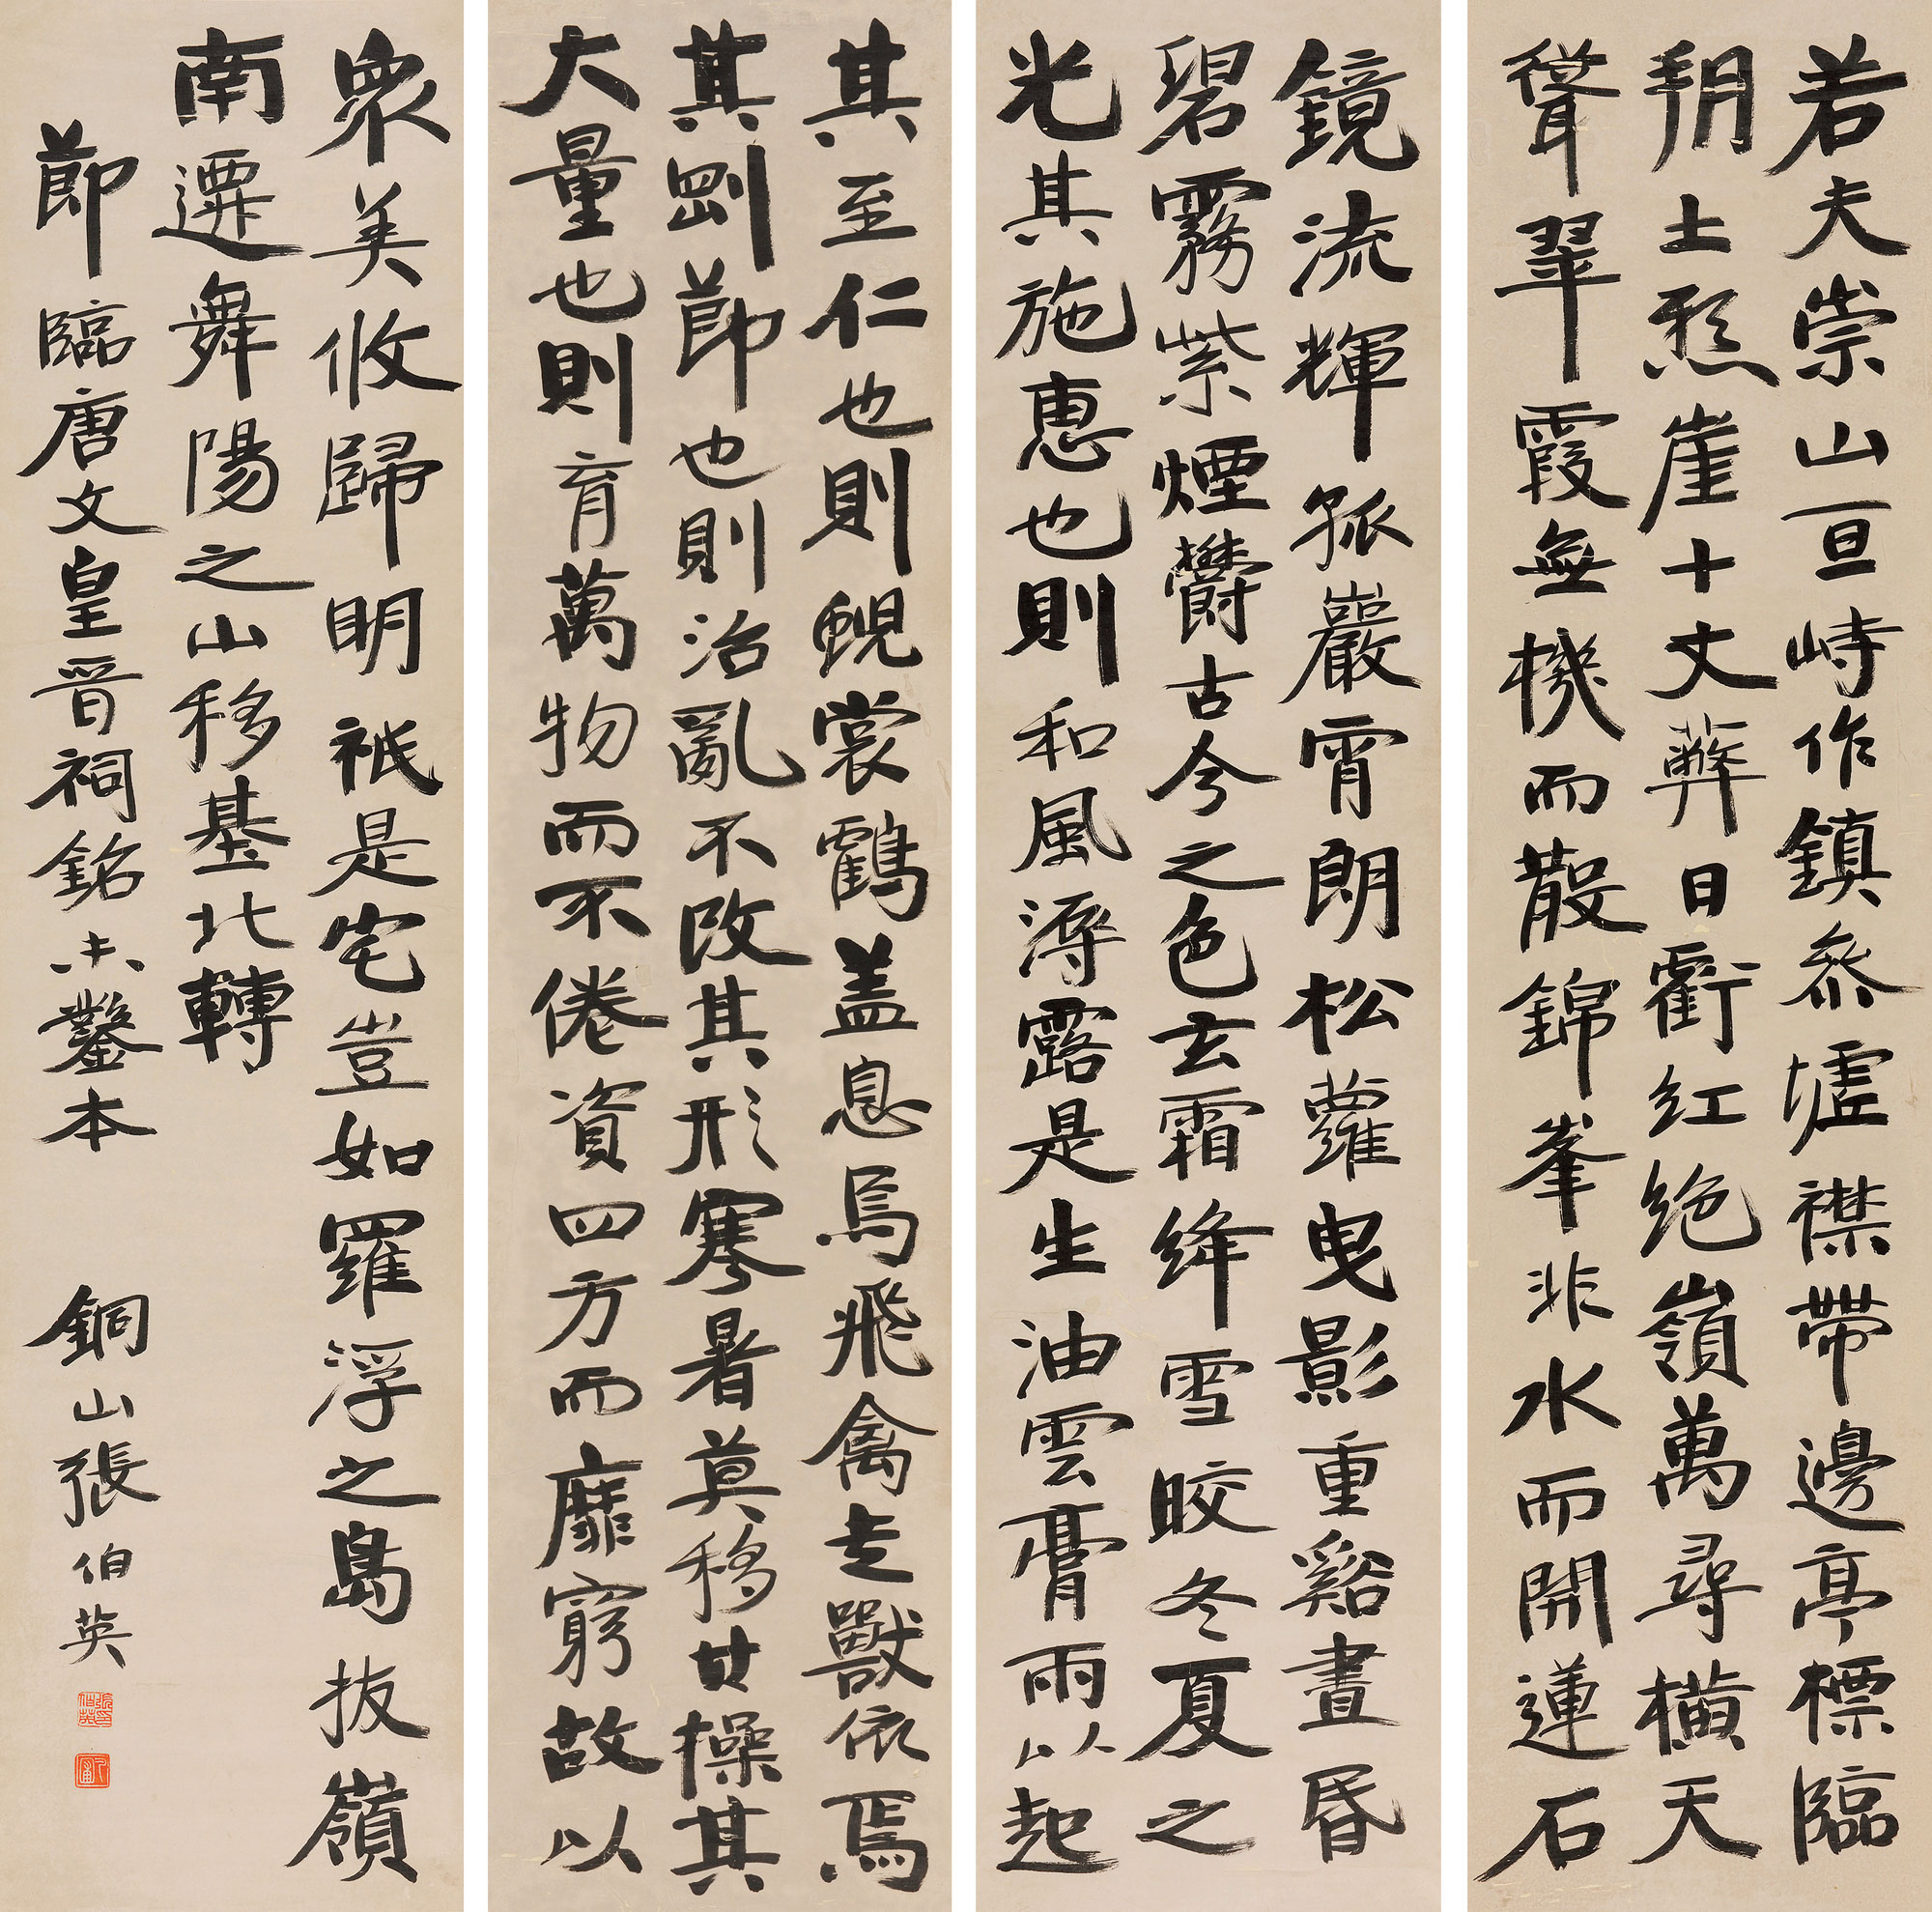 若夫崇山亘峙作鎮參墟襟帶邊亭標臨
朔土懸崖百丈蔽日虧紅絶嶺萬尋橫天
聳翠霞無機而散錦峯非水而開蓮石
鏡流輝孤巖宵朗松蘿曳影重谿晝昏
碧霧紫煙鬱古今之色玄霜絳雪皎冬夏之
光其施惠也則和風溽露是生油雲膏雨以起
其至仁也則蜺裳鶴盖息焉飛禽走獸依焉
其剛節也則治亂不改其形寒暑莫移其操其
大量也則育萬物而不倦資四方而靡窮故以
眾美攸歸明祇是宅豈如羅浮之島拔嶺
南遷舞陽之山移基北轉
節臨唐文皇晉祠銘未鑿本 銅山張伯英
張伯英印